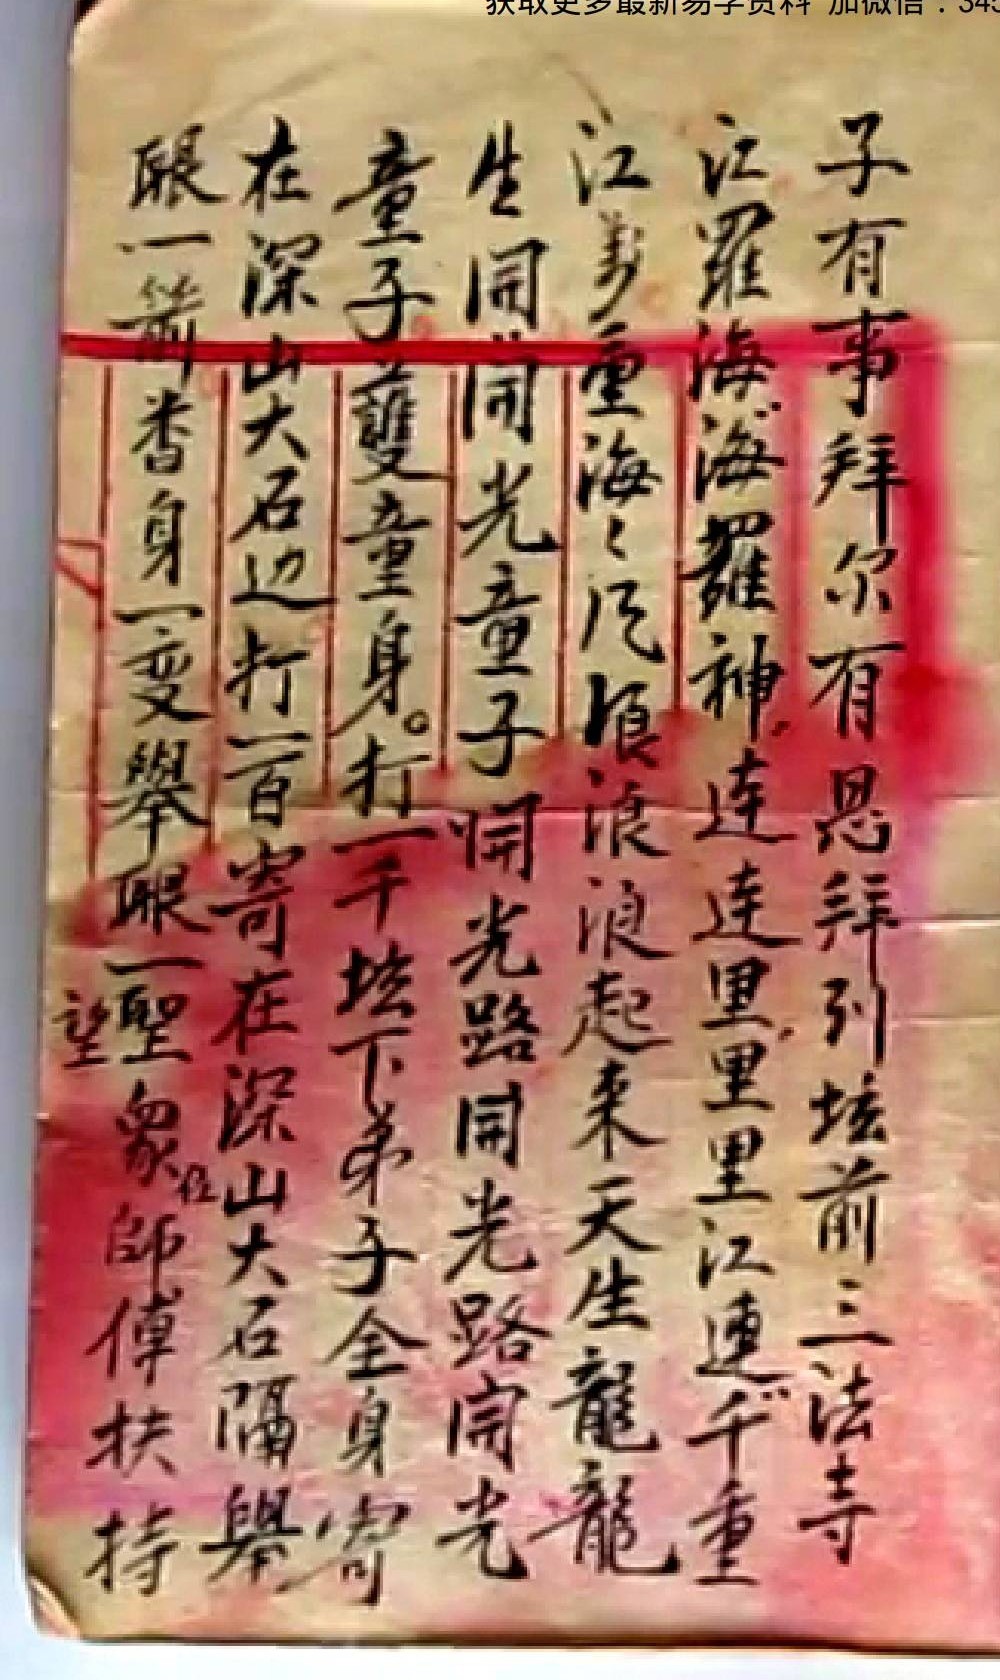 获取更多最新易学资料 加微信：345
子有事拜尔有恩拜列坛前三法寺
江羅海海羅神連連里里里江連千重
江萬重海々浪浪浪起来天生龍龍
生開開光童子開光路開光路開光
童子雙童身。打一千坛下弟子全身寄
在深山大石边打一百寄在深山大石隔舉
眼一箭香身一变舉眼一聖衆師傅扶持
望
位